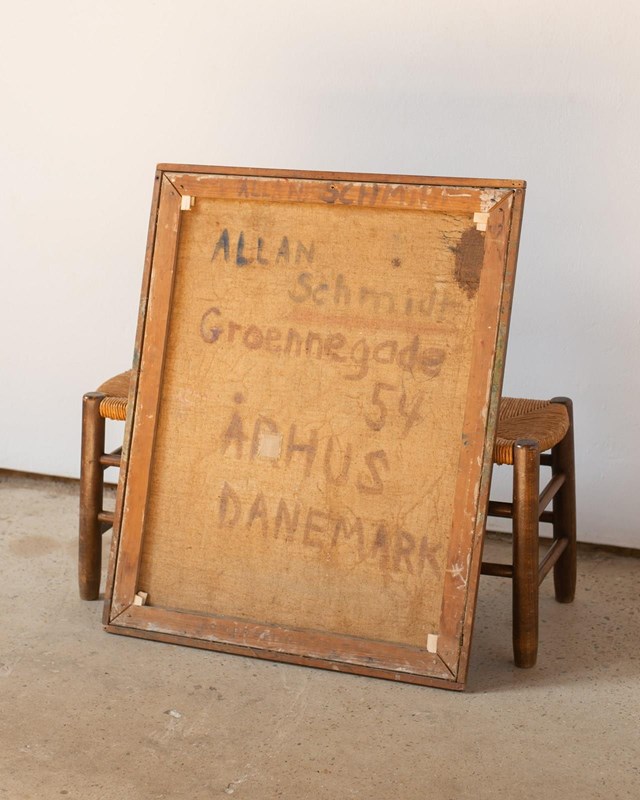 ALLAN SCHMIDT
ALLAN
Schmidt
Groennegade
54
ÅRHUS
DANEMARK